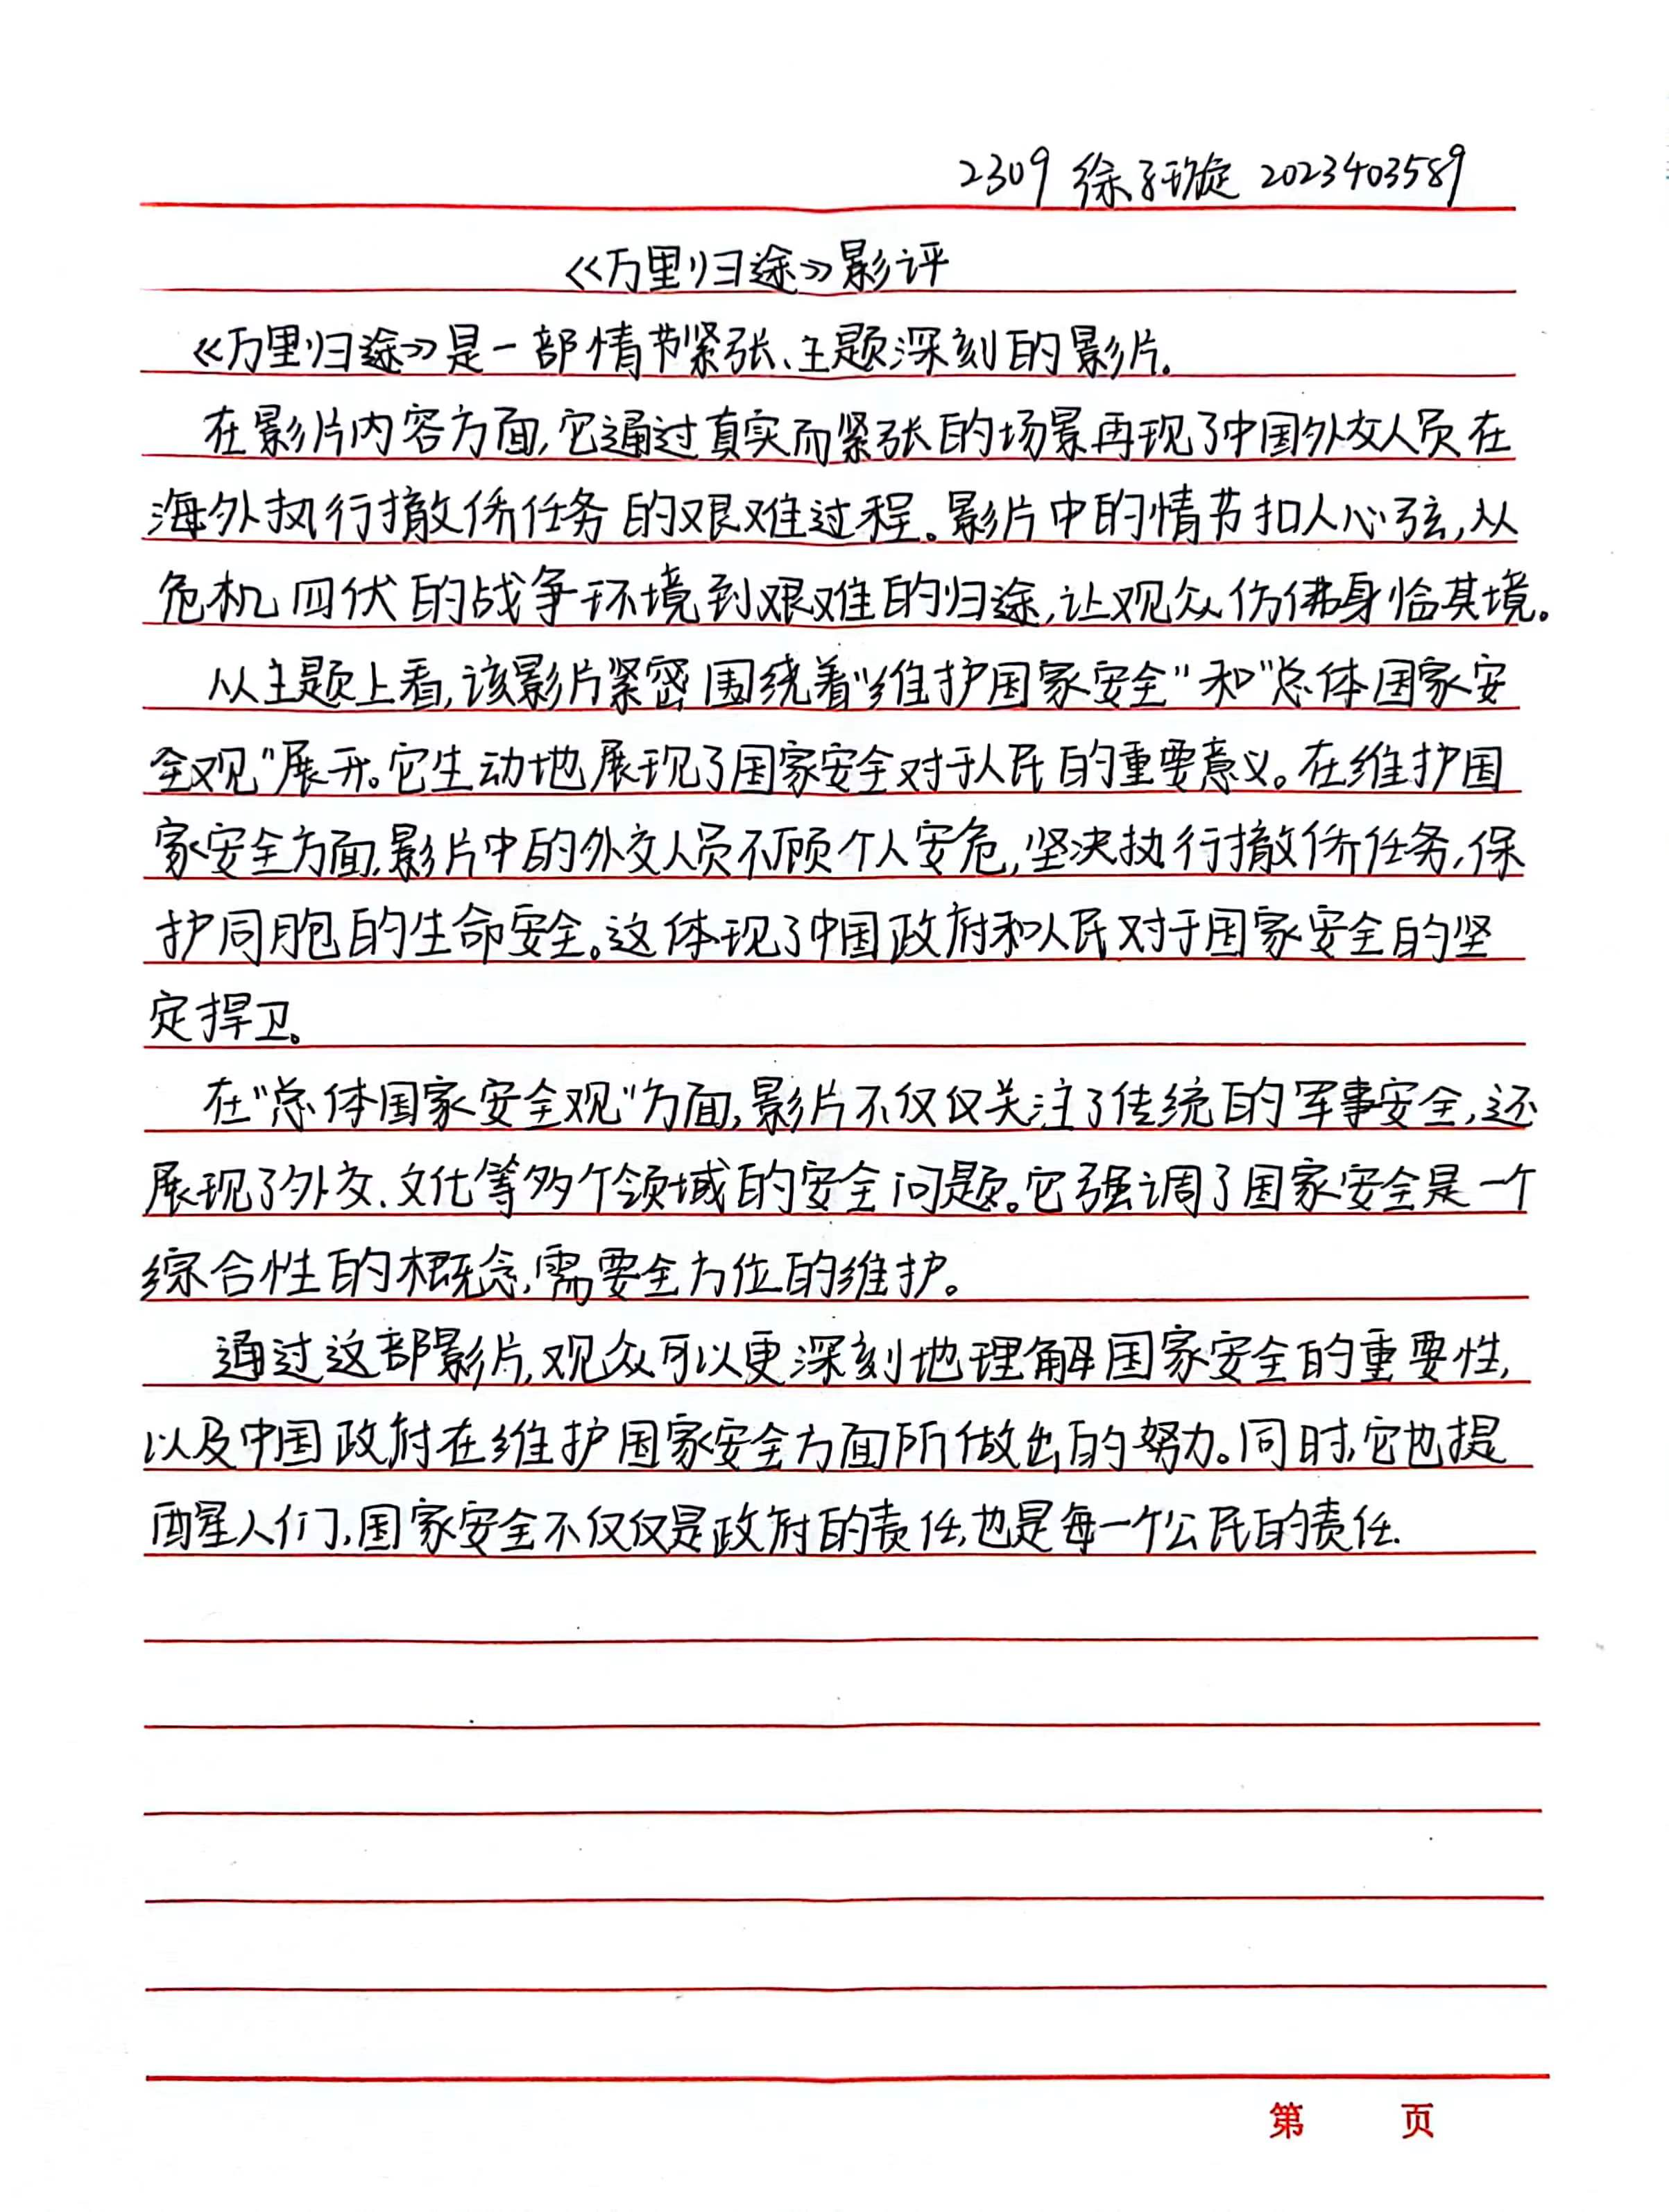 2309 徐子璇 2023403589
《万里归途》影评
《万里归途》是一部情节紧张、主题深刻的影片。
在影片内容方面,它通过真实而紧张的场景再现了中国外交人员在
海外执行撤侨任务的艰难过程。影片中的情节扣人心弦,从
危机四伏的战争环境到艰难的归途,让观众仿佛身临其境。
从主题上看,该影片紧密围绕着“维护国家安全”和“总体国家安
全观”展开。它生动地展现了国家安全对于人民的重要意义。在维护国
家安全方面,影片中的外交人员不顾个人安危,坚决执行撤侨任务,保
护同胞的生命安全。这体现了中国政府和人民对于国家安全的坚
定捍卫。
在“总体国家安全观”方面,影片不仅仅关注了传统的军事安全,还
展现了外交、文化等多个领域的安全问题。它强调了国家安全是一个
综合性的概念,需要全方位的维护。
通过这部影片,观众可以更深刻地理解国家安全的重要性,
以及中国政府在维护国家安全方面所做出的努力。同时,它也提
醒人们,国家安全不仅仅是政府的责任,也是每一个公民的责任.
第 页